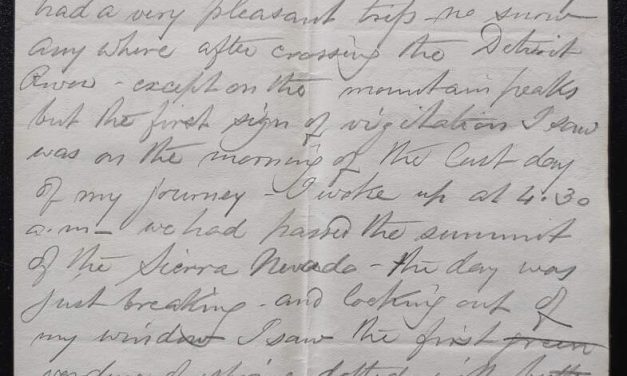 had a very pleasant trip - no snow
any where after crossing the Detroit
River - except on the mountain peaks
but the first sign of vigitation I saw
was on the morning of the last day
of my journey - I woke up at 4.30
a.m - we had passed the summit
of the Sierra Nevada - the day was
just breaking - and looking out of
my window I saw the first green
verdure of spring dotted with